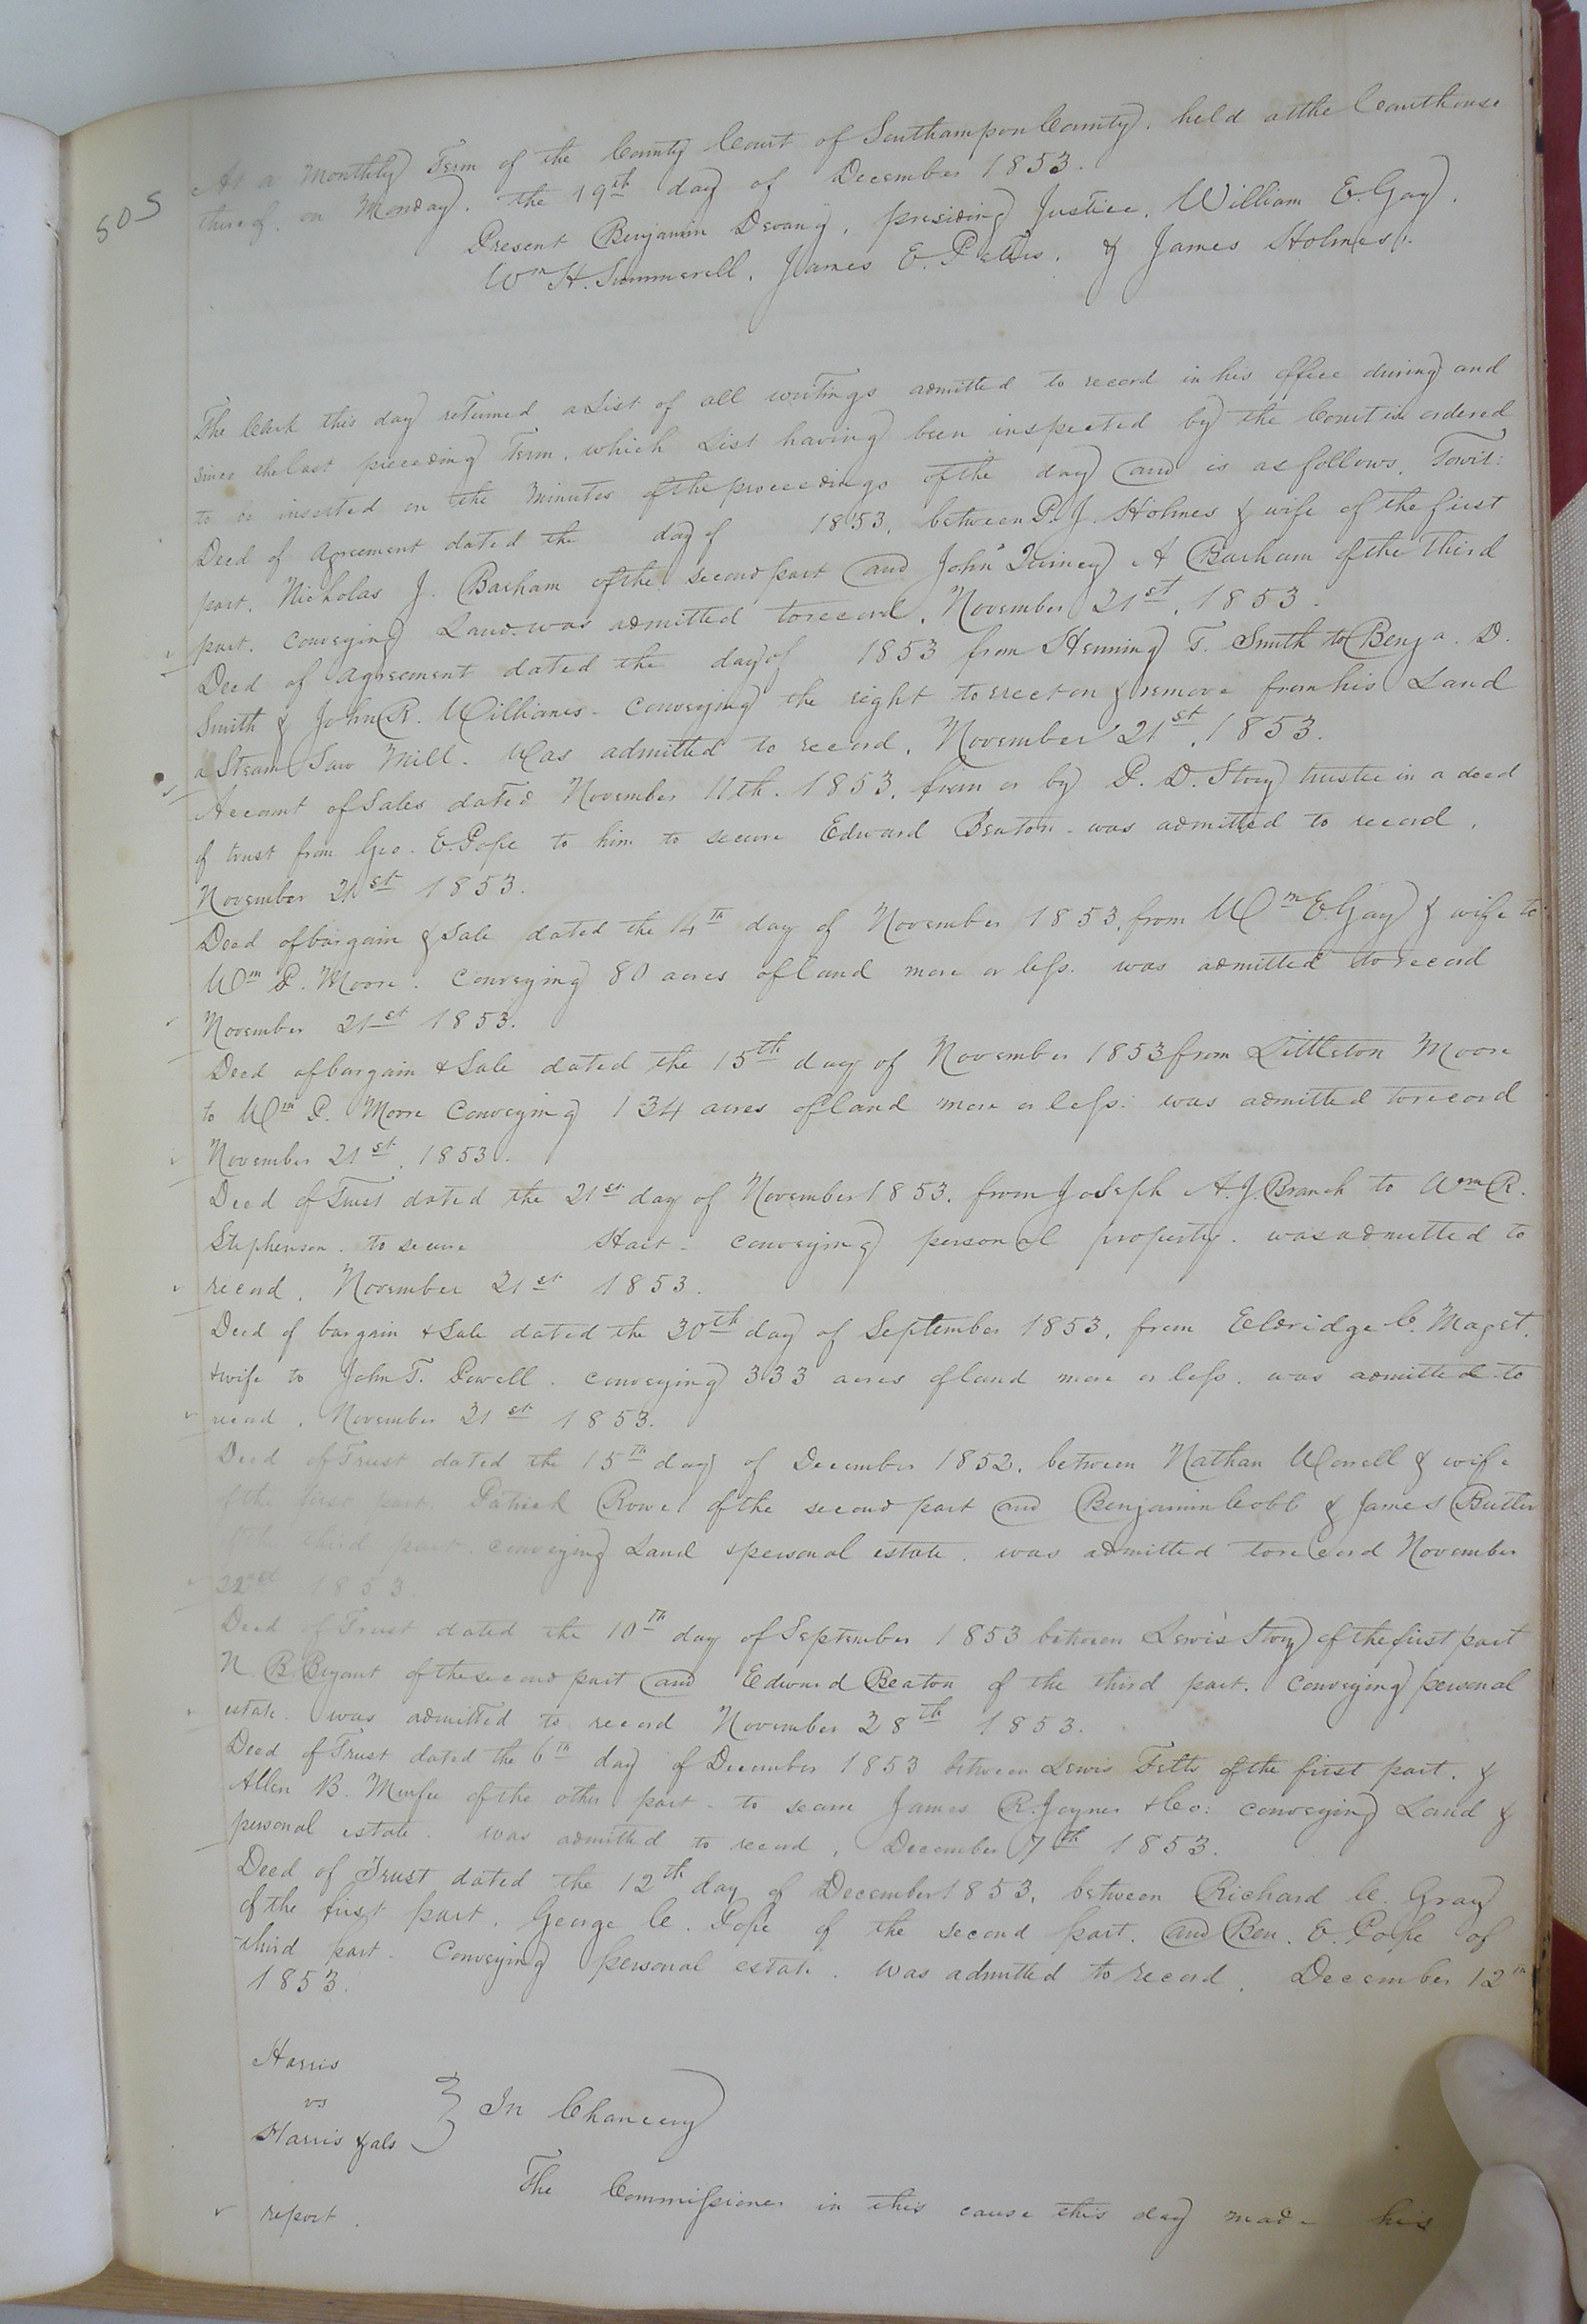 505
At a Monthly Term of the County Court of Southampon County, held at the Courthouse
thereof, on Monday, the 19th day of December 1853.
Present Benjamin Devany, presiding Justice, William E. Gay,
Wm H. Summerell, James E. Pettis, & James Holmes.
The Clerk this day returned a List of all writings admitted to record in his office during and
since the last preceeding Term, which List having been inspected by the Court is ordered
to be inserted on the Minutes of the proceedings of the day and is as follows, Towit:
Deed of Agreement dated the day of 1853, between P. J. Holmes & wife of the first
part, Nicholas J. Barham of the second part and John Quincy A Barham of the third
part, conveying Land was admitted to record, November 21st, 1853.
Deed of Agreement dated the day of 1853 from Henning T. Smith to Benja. D.
Smith & John R. Williams - conveying the right to erect on & remove from his Land
a Steam Saw Mill. Was admitted to record, November 21st, 1853.
Account of Sales dated November 11th. 1853, from or by P. D. Story trustee in a deed
of trust from Geo. E. Pope to him to secure Edward Beaton - was admitted to record,
November 21st 1853.
Deed of bargain & Sale dated the 14th day of November 1853, from Wm E. Gay & wife to
Wm P. Moore. Conveying 80 acres of land more or less. was admitted to record
November 21st 1853.
Deed of bargain & Sale dated the 15th day of November 1853 from Littleton Moore
to Wm P. Moore Conveying 134 acres of land more or less: was admitted to record
November 21st, 1853.
Deed of Trust dated the 21st day of November 1853, from Joseph A. J. Branch to Wm R.
Stephenson. to secure Hart - conveying personal property. was admitted to
record, November 21st 1853.
Deed of bargain & Sale dated the 30th day of September 1853, from Eldridge C. Maget.
& wife to John T. Powell. conveying 333 acres of land more or less. was admitted to
record, November 21st 1853.
Deed of Trust dated the 15th day of December 1852, between Nathan Worrell & wife
of the first part, Patrick Rowe of the second part and Benjamin Cobb & James Butler
of the third part. conveying Land & personal estate. was admitted to record November
22nd 1853.
Deed of Trust dated the 10th day of September 1853 between Lewis Story of the first part
N. B. Bryant of the second part and Edward Beaton of the third part. conveying personal
estate. was admitted to record November 28th 1853.
Deed of Trust dated the 6th day of December 1853 between Lewis Felts of the first part, &
Allen B. of the other part - to secure James R. Joyner & Co: conveying Land &
personal estate. was admitted to record, December 7th 1853.
Deed of Trust dated the 12th day of December 1853, between Richard C. Gray
of the first part, George C. Pope of the second part. and Ben. E. Pope of
third part. Conveying personal estate. was admitted to record, December 12th
1853.
Harris
vs
Harris & als } In Chancery
The Commissioner in this cause this day made his
report.